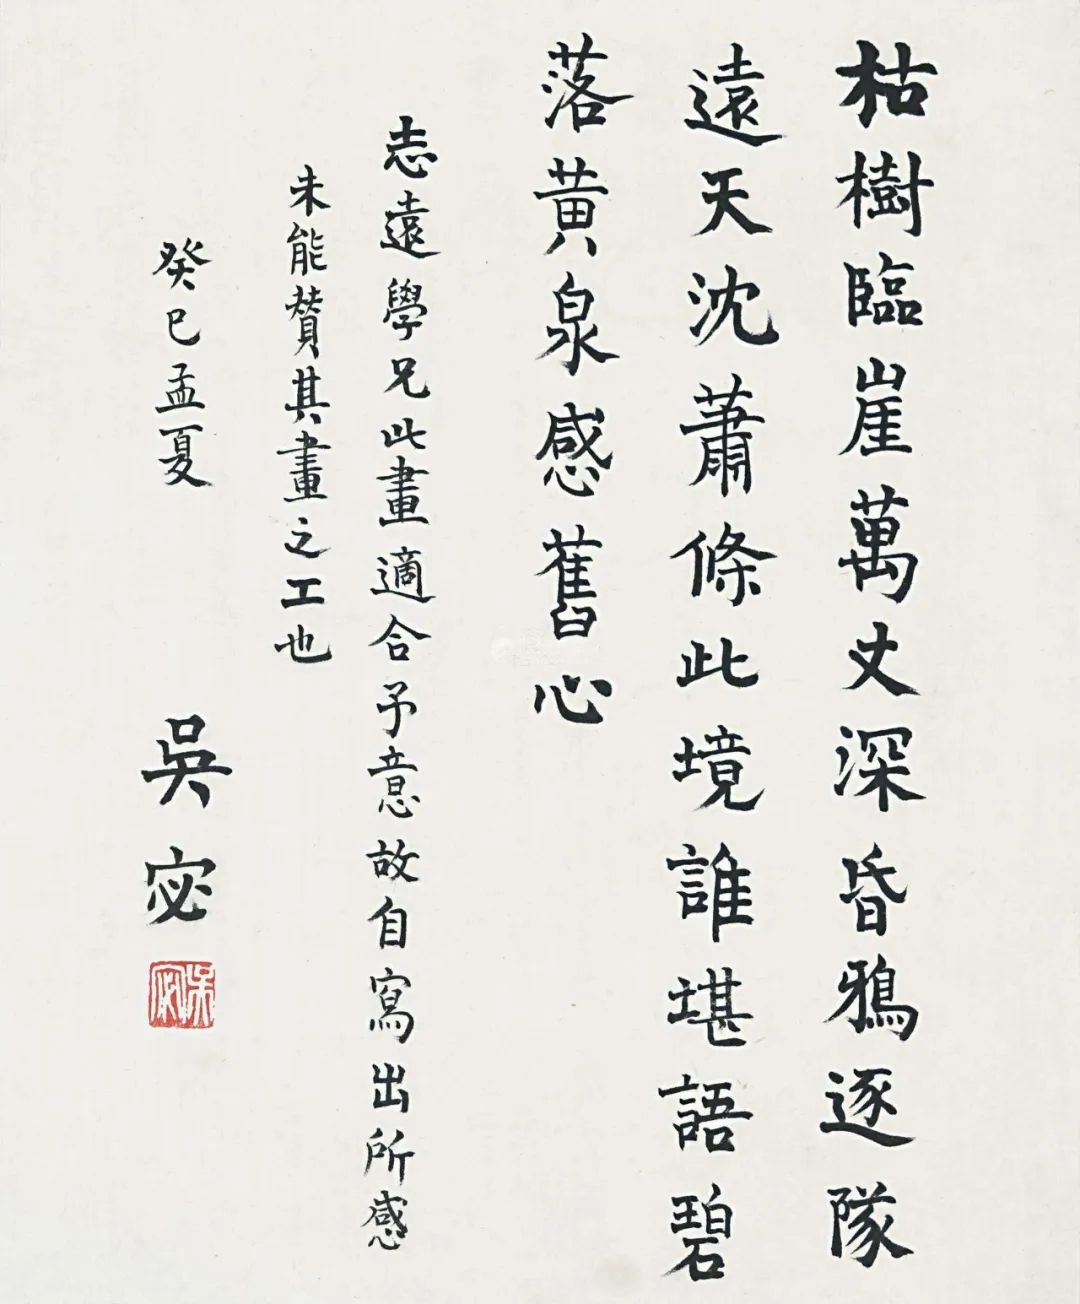 枯樹臨崖萬丈深昏鴉逐隊
遠天沈蕭條此境誰堪語碧
落黄泉感舊心
志遠學兄此畫適合予意故自寫出所感
未能贊其畫之工也
癸巳孟夏
吳宓
吳宓